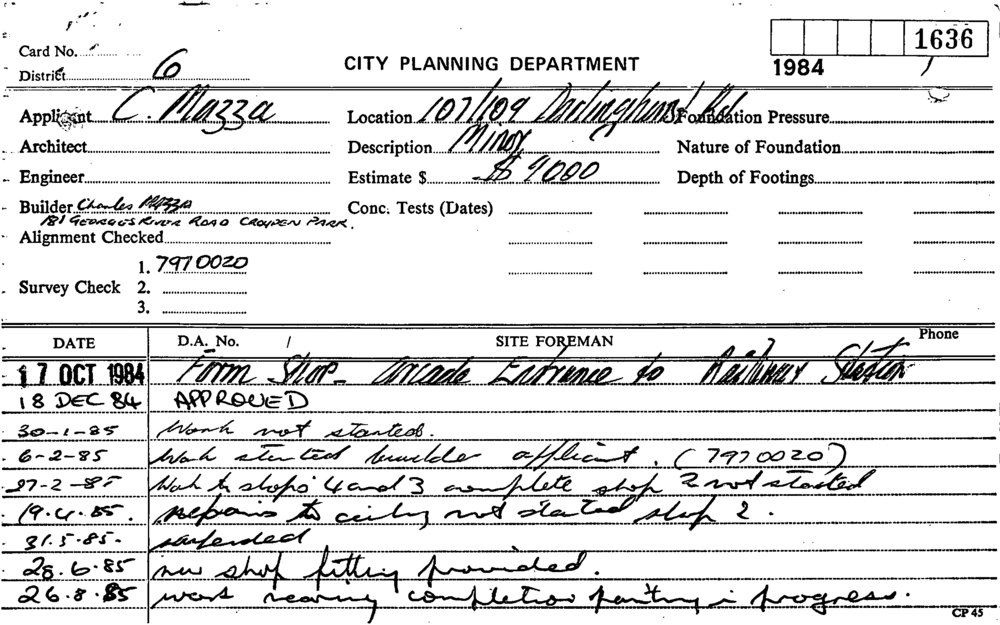 1636
Card No.
1984
District 6
CITY PLANNING DEPARTMENT
Applicant C. Mazza Location 107/109 Darlinghurst Rd Foundation Pressure
Architect Description Minor Nature of Foundation
Engineer Estimate $ $ 9000 Depth of Footings
Builder Charles Mazza Conc. Tests (Dates)
181 GEORGES RIVER ROAD CROYDEN PARK.
Alignment Checked
1. 7970020
Survey Check 2.
3.
DATE D.A. No. SITE FOREMAN Phone
17 OCT 1984 Form Shop - arcade Entrance to Railway Station
18 DEC 84 APPROVED
30-1-85 Work not started.
6-2-85 Work started builder applicant. (7970020)
27-2-85 Work to shops 4 and 3 complete shop 2 not started
19.4.85. repairs to ceiling not started shop 2.
31.5.85.
28.6.85 new shop fitting provided.
26.8.85 work nearing completion painting in progress.
CP 45